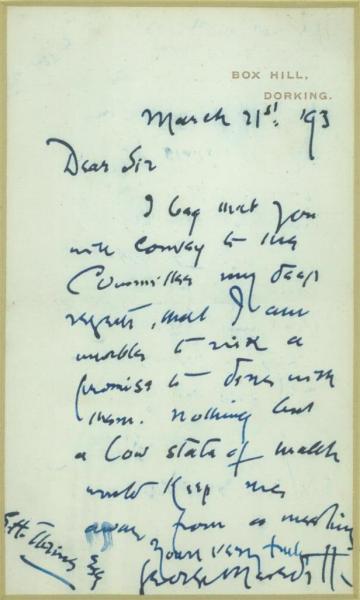 BOX HILL,
DORKING.
March 21st: '93
Dear Sir
I beg that you
will convey to the
Committee my deep
regrets, that I am
unable to risk a
promise to dine with
them. Nothing but
a low state of health
would keep me
away from a meeting
Yours very truly
George Meredith
G.H. Thring Esq